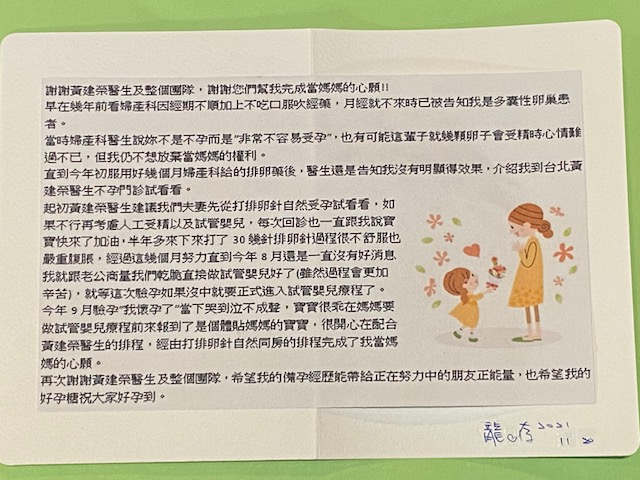 謝謝黃建榮醫生及整個團隊，謝謝您們幫我完成當媽媽的心願!!
早在幾年前看婦產科因經期不順加上不吃口服吹經藥，月經就不來時已被告知我是多囊性卵巢患
者。
當時婦產科醫生說妳不是不孕而是"非常不容易受孕"，也有可能這輩子就幾顆卵子會受精時心情難
過不已，但我仍不想放棄當媽媽的權利。
直到今年初服用好幾個月婦產科給的排卵藥後，醫生還是告知我沒有明顯得效果，介紹我到台北黃
建榮醫生不孕門診試看看。
起初黃建榮醫生建議我們夫妻先從打排卵針自然受孕試看看，如
果不行再考慮人工受精以及試管嬰兒，每次回診也一直跟我說寶
寶快來了加油，半年多來下來打了 30 幾針排卵針過程很不舒服也
嚴重腹脹，經過這幾個月努力直到今年 8 月還是一直沒有好消息
我就跟老公商量我們乾脆直接做試管嬰兒好了(雖然過程會更加
辛苦)，就等這次驗孕如果沒中就要正式進入試管嬰兒療程了。
今年 9 月驗孕"我懷孕了"當下哭到泣不成聲，寶寶很乖在媽媽要
做試管嬰兒療程前來報到了是個體貼媽媽的寶寶，很開心在配合
黃建榮醫生的排程，經由打排卵針自然同房的排程完成了我當媽
媽的心願。
再次謝謝黃建榮醫生及整個團隊，希望我的備孕經歷能帶給正在努力中的朋友正能量，也希望我的
好孕糖祝大家好孕到。
龍 2021
11